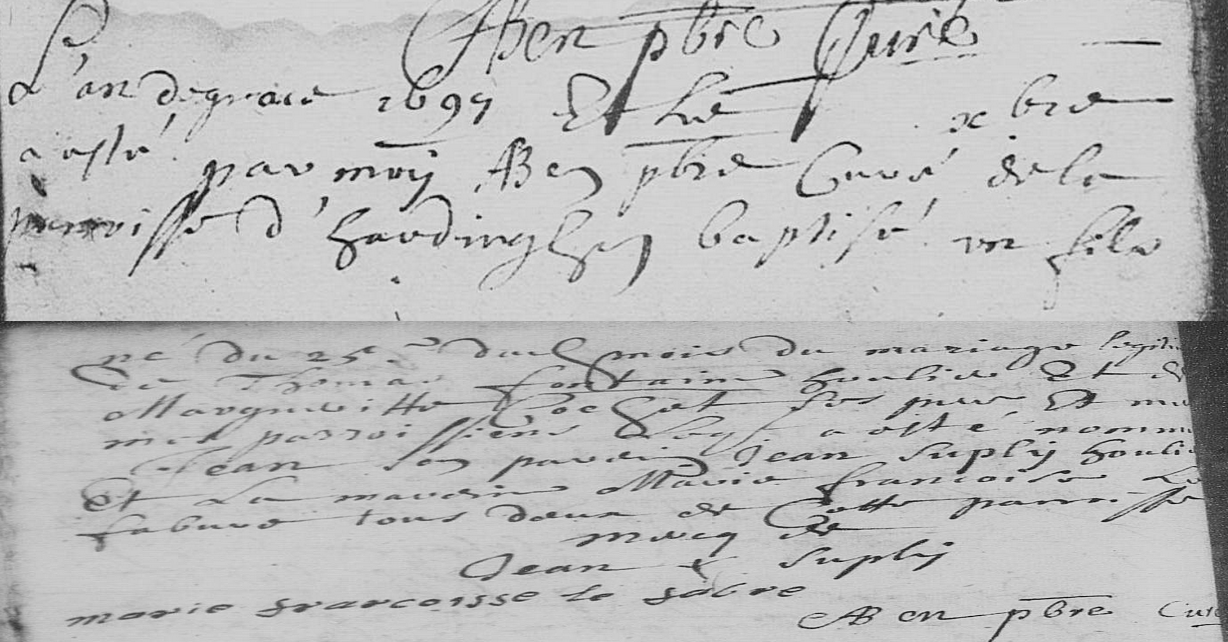 ABen pbre Curé
L'an de grace 1697 Et Le xbre
a esté par moÿ ABen pbre Curé de la
parroisse d'hardinghen baptisé un fils
né du 25e dud mois du mariage legiti
de Thomas fontaine houlieu Et de
Margueritte hochet ses pere Et me
mes parroissiens Leql a esté nomm
Jean son parein Jean Suplÿ houli
Et La mareine Marie francoise Le
fabure tous deux de Cette parroisse
marcq de
Jean Suplÿ
marie francoisse le fabre
ABen pbre Curé